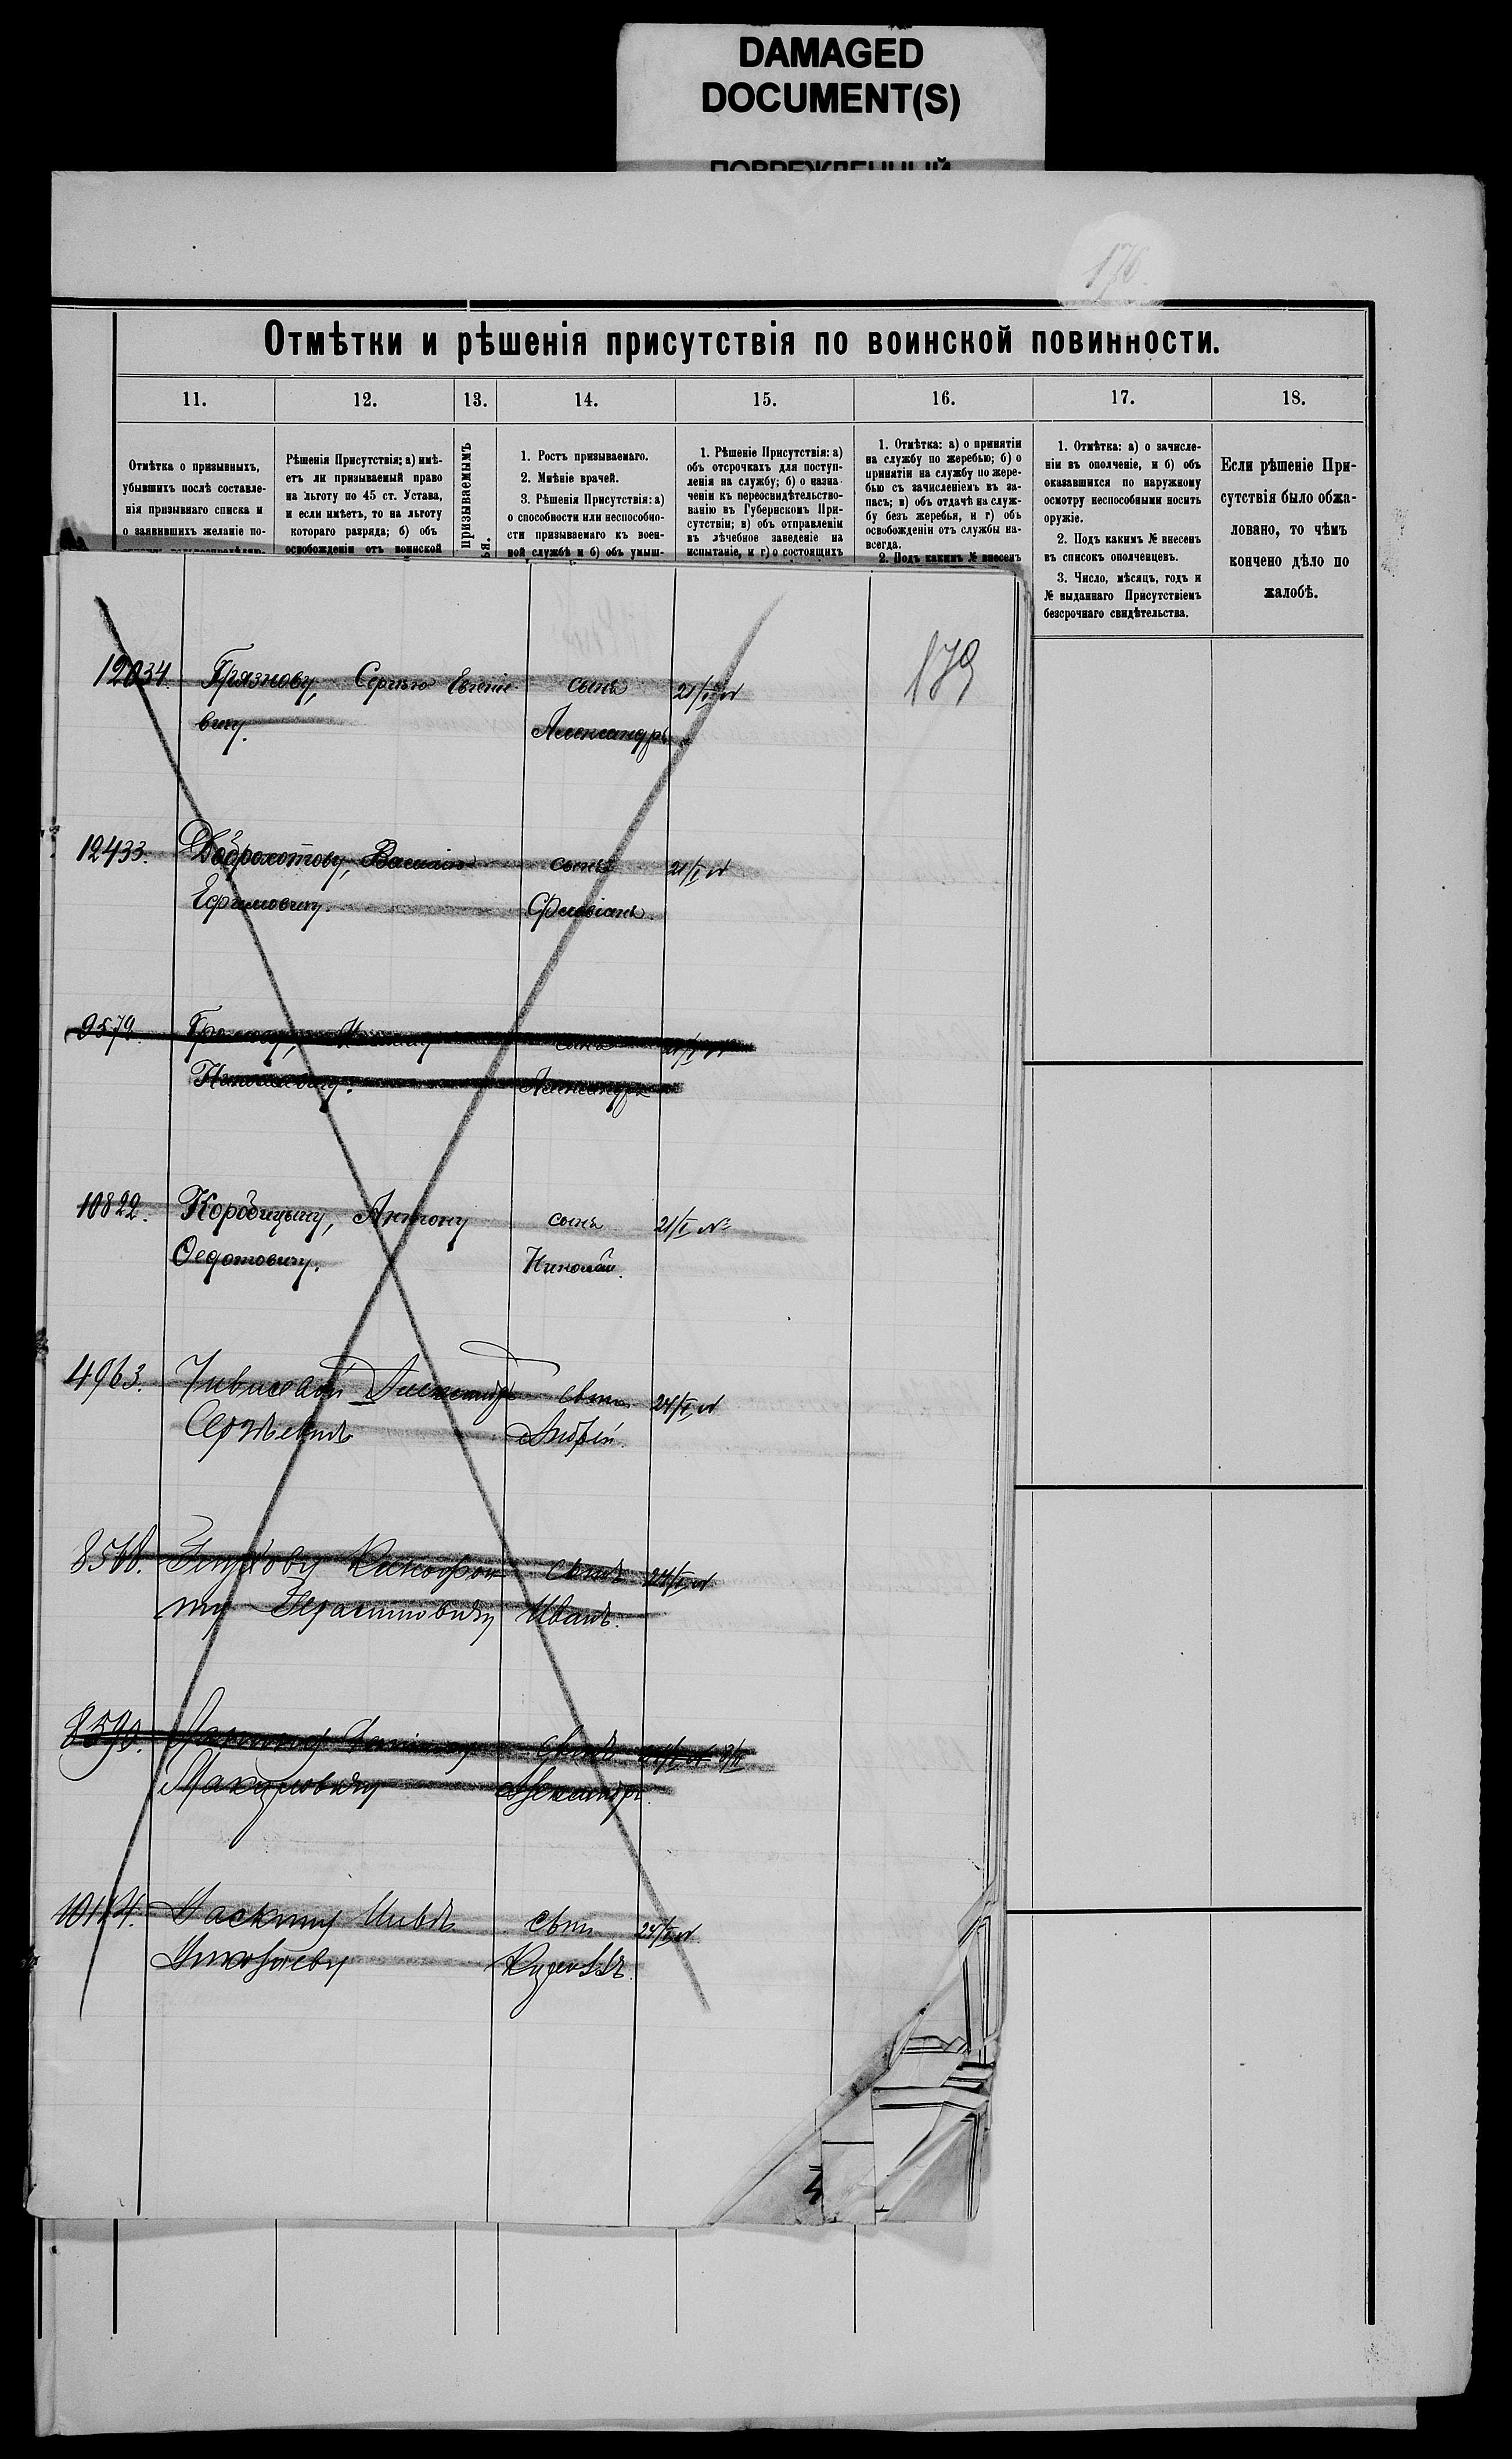 DAMAGED
DOCUMENT(S)
ПОВРЕЖДЕННЫЙ
176.
Отмѣтки и рѣшенія присутствія по воинской повинности.
11. 12. 13. 14. 15. 16. 17. 18.
Отмѣтка о призывныхъ,
убывшихъ послѣ составле-
нія призывнаго списка и
о заявившихъ желаніе по-
Рѣшенія Присутствія: а) имѣ-
етъ ли призываемый право
на льготу по 45 ст. Устава,
и если имѣетъ, то на льготу
котораго разряда; б) объ
освобожденіи отъ воинской
призываемымъ
1. Ростъ призываемаго.
2. Мнѣніе врачей.
3. Рѣшенія Присутствія: а)
о способности или неспособно-
сти призываемаго къ воен-
ной службѣ и б) объ умыш-
1. Рѣшеніе Присутствія: а)
объ отсрочкахъ для поступ-
ленія на службу; б) о назна-
ченіи къ переосвидѣтельство-
ванію въ Губернскомъ При-
сутствіи; в) объ отправленіи
въ лѣчебное заведеніе на
испытаніе, и г) о состоящихъ
1. Отмѣтка: а) о принятіи
на службу по жеребью; б) о
принятіи на службу по жере-
бью съ зачисленіемъ въ за-
пасъ; в) объ отдачѣ на служ-
бу безъ жеребья, и г) объ
освобожденіи отъ службы на-
всегда.
2. Подъ какимъ № внесенъ
1. Отмѣтка: а) о зачисле-
ніи въ ополченіе, и б) объ
оказавшихся по наружному
осмотру неспособными носить
оружіе.
2. Подъ какимъ № внесенъ
въ списокъ ополченцевъ.
3. Число, мѣсяцъ, годъ и
№ выданнаго Присутствіемъ
безсрочнаго свидѣтельства.
Если рѣшеніе При-
сутствія было обжа-
ловано, то чѣмъ
кончено дѣло по
жалобѣ.
179
12034. Грязнову, Сергѣю Евгеніе- сынъ 21/I №
вичу. Александръ
12433. Доброхотову, Василію сынъ 21/I №
Ефимовичу. Флавіанъ.
9572. сынъ 21/I №
Николаевичу. Александръ
10822. Коробицыну, Антону сынъ 21/I №
Ѳедотовичу. Николай.
4963. Александръ сынъ 24/I №
Сергѣевичъ Андрей.
сынъ 24/I №
ту Герасимовичу Иванъ.
8590. сынъ
Александръ.
10114. Паскину сынъ 24/I №